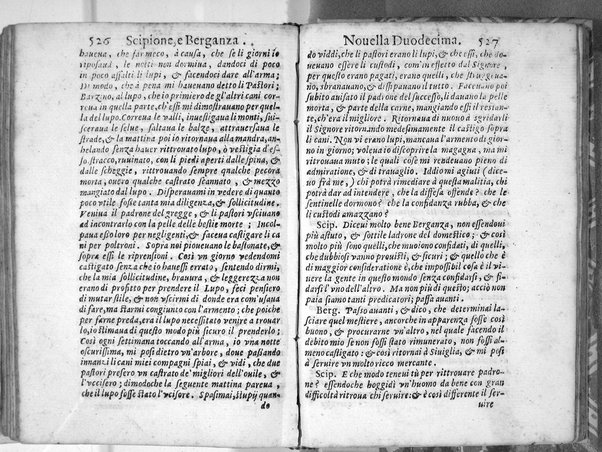 526 Scipione, e Berganza.
haueua, che far meco, à causa, che se li giorni io
riposaua, le notti non dormiua, dandoci di poco
in poco assalti li lupi, & facendoci dare all'arma;
Di modo, che à pena mi haueuano detto li Pastori;
Barzino, al lupo, che io primiero de gl'altri cani cor
reua in quella parte, ch'essi mi dimostrauano per quel
la del lupo. Correua le valli, inuestigaua li monti, sui-
sceraua le selue, saltaua le balze, attrauersaua le
strade, & la mattina poi io ritornaua alla mandra, an-
helando senza hauer rittrouato lupo, ò vestigia d'es-
so, stracco, ruuinato, con li piedi aperti dalle spine, &
dalle scheggie, rittrouando sempre qualche pecora
morta, ouero qualche castrato scannato, & mezzo
mangiato dal lupo. Disperauami in veder di quanto
poco vtile fosse cotanta mia diligenza, & sollicitudine.
Veniua il padrone del gregge, & li pastori vsciuano
ad incontrarlo con la pelle delle bestie morte; Incol-
paua essoloro per negligenti, & faceua castigare li ca
ni per poltroni. Sopra noi piouevano le bastonate, &
sopra essi le riprensioni. Così vn giorno vedendomi
castigato senza che io hauessi errato, sentendo dirmi,
che la mia sollicitudine, brauura, & leggerezza non
erano di profitto per prendere il Lupo, feci pensiero
di mutar stile, & non vscirmi di donde era com'vsaua
di fare, ma starmi congiunto con l'armento; che poiche
per farne preda, era il lupo necessitato venire a trouar
lo, io stimaua di questo modo più sicuro il prenderlo;
Così ogni settimana toccando all'arma, io vna notte
oscurissima, mi posi dietro vn'arbore, doue passando
innanzi li cani miei compagni spiai, & vidi, che due
pastori presero vn castrato de' migliori dell'ouile, &
l'vccisero; dimodoche la seguente mattina pareua,
che il lupo fosse stato l'vcisore. Spasimai, stupij quan-
do
Nouella Duodecima. 527
do viddi, che li pastori erano li lupi, & che essi, che do-
ueuano essere li custodi, com'in effetto dal Signore,
per questo erano pagati, erano quelli, che struggeua-
no, sbranauano, & dissipauano il tutto. Faceuano poi
subito auisato il padrone del successo, li dauano la pelle
morta, & parte della carne, mangiando essi il restan-
te, ch'era il migliore. Ritornaua di nuouo à sgridarli
il Signore ritornando medesimamente il castigo sopra
li cani. Non vi erano lupi, mancaua l'armento di gior-
no in giorno; voleua io discoprire la magagna, ma mi
ritrouaua muto; le quali cose mi rendeuano pieno di
admiratione, & di trauaglio. Iddio m'agiuti (dice-
uo frà me,) chi potrà rimediare à questa malitia, chi
potrà dar ad intendere, che la diffesa offende? che le
sentinelle dormono? che la confidanza rubba, & che
li custodi amazzano?
Scip. Diceui molto bene Berganza, non essendoui
più astuto, & sottile ladrone del domestico; & così
molto più sono quelli, che muoiono confidati, di quelli,
che dubbiosi vanno prouisti, & sicuri; & quello che è
di maggior consideratione è, che impossibil cosa è il vi-
uere la gente in questo mondo senza confidarsi, & fi-
darsi l'vno dell'altro. Ma non più di questo; acciò non
paia siamo tanti predicatori; passa auanti.
Berg. Passo auanti, & dico, che determinai la-
sciare quel mestiere, ancorche in apparenza fosse così
buono, & procurarne vn'altro, nel quale facendo il
debito mio se non fossi stato rimunerato, non fossi al-
meno castigato: & così ritornai à Siuiglia, & mi posi
à seruire vn molto ricco mercante.
Scip. E che modo teneui tù per rittrouare padro-
ne? essendoche hoggidì vn'huomo da bene con gran
difficoltà ritroua chi seruire: & è così differente il ser-
uire